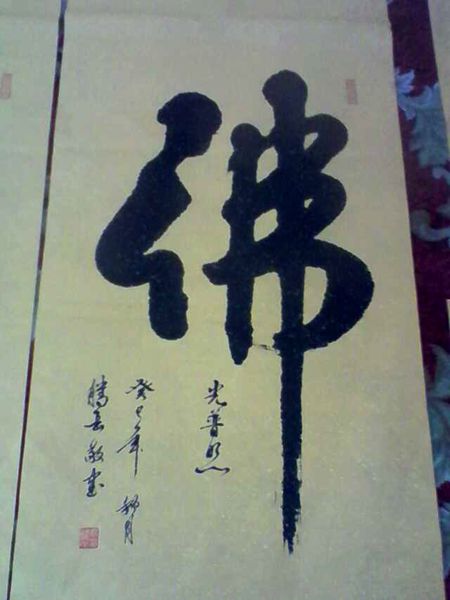 佛
光普照
癸巳年 秋月
腾岳敬书